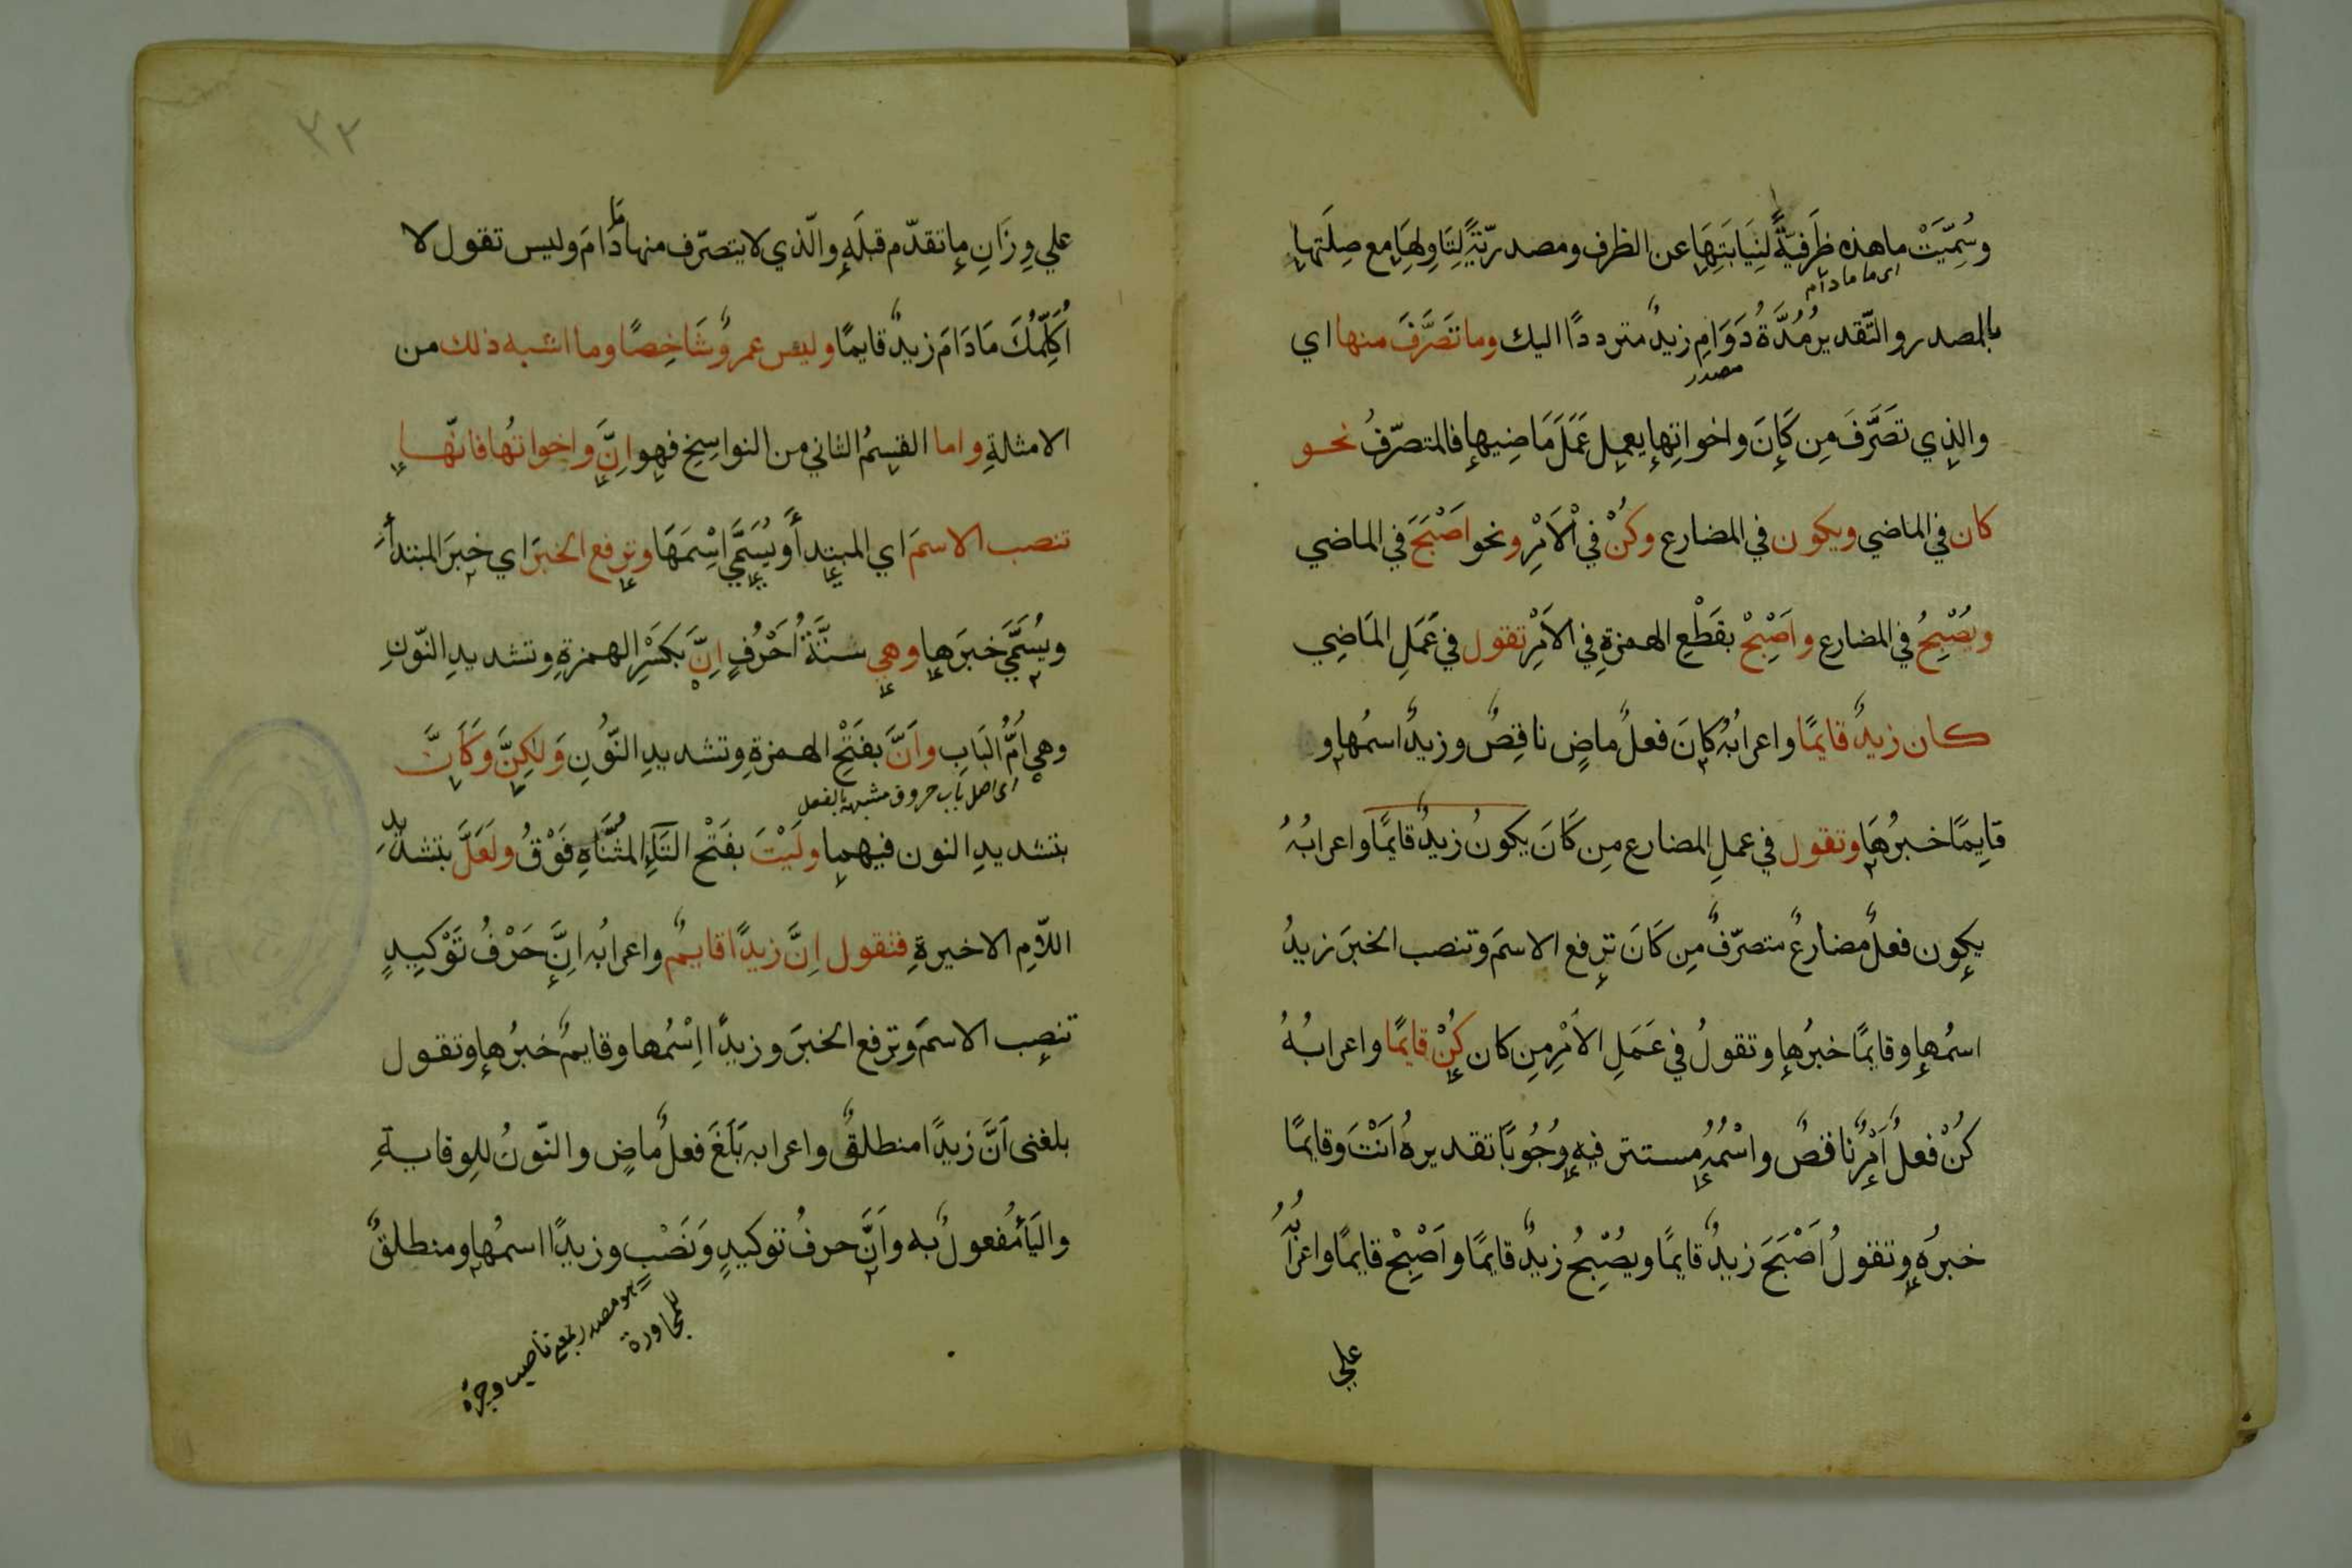 وسُمِّيَتْ ما هذه ظَرفيّةً لِنِيَابَتِهَا عن الظرف ومصدريّةً لِتَاوِلهَا مع صِلَتها
اى ما ما دام
بالمصدر والتّقدير مُدَّةُ دَوَامِ زيدٌ مترددًا اليك وما تَصَرَّفَ منها اي
مصدر
والذي تصَرَّفَ مِن كَانَ واخواتِها يعمل عَمَلَ مَاضِيها فالمتصرّفُ نحو
كان في الماضي ويكون في المضارع وكُنْ في الْاَمْرِ ونحو اَصْبَحَ في الماضي
ويُصْبِحُ في المضارع واَصْبِحْ بقَطْعِ الهمزةِ في الاَمْرِ تقول في عَمَلِ المَاضِي
كان زيدٌ قايمًا واعرابُهُ كانَ فعلٌ ماضٍ ناقِصٌ وزيدٌ اسمُها و
قايِمًا خبرُهَا وتقول في عملِ المضارع مِن كَانَ يكونُ زيدٌ قايمًا واعرابُهُ
يكون فعلٌ مضارعٌ متصرّفٌ مِن كَانَ ترفع الاسمَ وتنصب الخبرَ زيدُ
اسمُها وقايمًا خبرُها وتقولُ في عَمَلِ الاَمْرِ مِن كان كُنْ قايمًا واعرابُهُ
كُنْ فعلُ اَمْرٍ ناقصٌ واسْمُهُ مستتر فيه وُجُوبًا تقديره اَنْتَ وقايمًا
خبرُه وتقولُ اَصْبَحَ زيدٌ قايمًا ويُصْبِحُ زيدٌ قايمًا واَصْبِحْ قايمًا واعرابُهُ
علي
٣٢
علي وِزَانِ ما تقدّم قبلَه والّذي لا يتصرّف منها مَا دَامَ وليس تقول لا
اُكَلِّمُكَ مَا دَامَ زيدٌ قايمًا وليس عمروٌ شَاخِصًا وما اشبه ذلك من
الامثلةِ واما القِسمُ الثاني من النواسِخِ فهو اِنَّ واخواتُها فانّها
تنصب الاسمَ اي المبتدأ ويُسَمَّي اسْمَهَا وترفع الخبرَ اي خبرَ المبتدأ
ويُسَمَّي خبرَها وهي ستَّةُ اَحْرُفٍ اِنَّ بكَسْرِ الهمزةِ وتشديدِ النّونِ
وهي اُمُّ البَابِ واَنَّ بفتَحِْ الهمزةِ وتشديدِ النّونِ وَلٰكِنَّ وكَاَنَّ
اى اصل باب حروف مشبهة بالفعل
بتشديدِ النون فيهما ولَيْتَ بفَتْحِ التَاءِ المُثنَّاةِ فَوْقُ ولَعَلَّ بتشديدِ
اللاّمِ الاخيرةِ فتقول اِنَّ زيدًا قايمٌ واعرابُه اِنَّ حَرْفُ تَوْكِيدٍ
تنصب الاسمَ وترفع الخبرَ وزيدًا اِسْمُها وقايمٌ خبرُها وتقول
بلغنى اَنَّ زيدًا منطلقٌ واعرابه بَلَغَ فعلٌ ماضٍ والنّونُ للوِقايةِ
واليَاُ مفعولٌ به واَنَّ حرفُ توكيدٍ وَنَصْبٍ وزيدًا اسمُها ومنطلقٌ
هو مصدر بمعنى ناصب وجره
للمجاورة